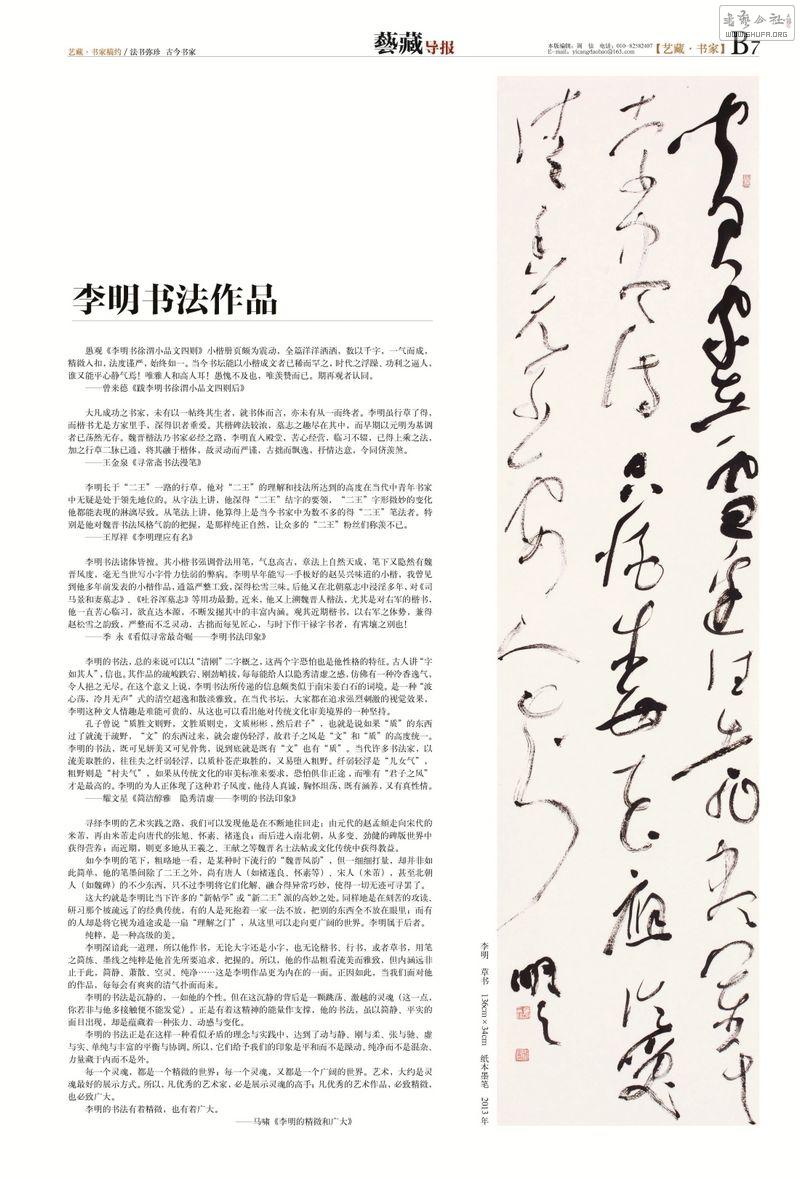 艺藏·书家稿约 / 法书弥珍 古今书家
藝藏导报
本版编辑：周 佶 电话：010-82582407
E-mail：yicangdaobao@163.com
【艺藏·书家】B7
书艺公社
WWW.SHUFA.ORG
李明书法作品
愚观《李明书徐渭小品文四则》小楷册页颇为震动，全篇洋洋洒洒，数以千字，一气而成，
精微入扣，法度谨严，始终如一。当今书坛能以小楷成文者已稀而罕之，时代之浮躁、功利之逼人，
谁又能平心静气焉！唯雅人和高人耳！愚愧不及也，唯羡赞而已。期再观者认同。
——曾来德《跋李明书徐渭小品文四则后》
大凡成功之书家，未有以一帖终其生者，就书体而言，亦未有从一而终者。李明虽行草了得，
而楷书尤是方家里手，深得识者垂爱。其楷碑法较浓，墓志之趣尽在其中，而早期以元明为基调
者已荡然无存。魏晋楷法乃书家必经之路，李明直入殿堂，苦心经营，临习不辍，已得上乘之法，
加之行草二脉已通，将其融于楷体，故灵动而严谨，古拙而飘逸，抒情达意，令同侪羡煞。
——王金泉《寻常斋书法漫笔》
李明长于“二王”一路的行草，他对“二王”的理解和技法所达到的高度在当代中青年书家
中无疑是处于领先地位的。从字法上讲，他深得“二王”结字的要领，“二王”字形微妙的变化
他都能表现的淋漓尽致。从笔法上讲，他算得上是当今书家中为数不多的得“二王”笔法者。特
别是他对魏晋书法风格气韵的把握，是那样纯正自然，让众多的“二王”粉丝们称羡不已。
——王厚祥《李明理应有名》
李明书法诸体皆擅。其小楷书强调骨法用笔，气息高古，章法上自然天成，笔下又隐然有魏
晋风度，毫无当世写小字骨力怯弱的弊病。李明早年能写一手极好的赵吴兴味道的小楷，我曾见
到他多年前发表的小楷作品，通篇严整工致，深得松雪三味。后他又在北朝墓志中浸淫多年，对《司
马景和妻墓志》、《吐谷浑墓志》等用功最勤。近来，他又上溯魏晋人楷法，尤其是对右军的楷书，
他一直苦心临习，欲直达本源，不断发掘其中的丰富内涵。观其近期楷书，以右军之体势，兼得
赵松雪之韵致，严整而不乏灵动，古拙而每见匠心，与时下作干禄字书者，有霄壤之别也！
——季 永《看似寻常最奇崛——李明书法印象》
李明的书法，总的来说可以以“清刚”二字概之，这两个字恐怕也是他性格的特征。古人讲“字
如其人”，信也。其作品的疏峻跌宕、刚劲峭拔，每每能给人以隐秀清虚之感，仿佛有一种冷香逸气，
令人挹之无尽。在这个意义上说，李明书法所传递的信息颇类似于南宋姜白石的词境。是一种“波
心荡，冷月无声”式的清空超逸和散淡雅致。在当代书坛，大家都在追求强烈刺激的视觉效果，
李明这种文人情趣是难能可贵的，从这也可以看出他对传统文化审美境界的一种坚持。
孔子曾说“质胜文则野，文胜质则史，文质彬彬，然后君子”，也就是说如果“质”的东西
过了就流于疏野，“文”的东西过来，就会虚伪轻浮，故君子之风是“文”和“质”的高度统一。
李明的书法，既可见妍美又可见骨隽，说到底就是既有“文”也有“质”。当代许多书法家，以
流美取胜的，往往失之纤弱轻浮，以质朴苍茫取胜的，又易堕入粗野。纤弱轻浮是“儿女气”，
粗野则是“村夫气”，如果从传统文化的审美标准来要求，恐怕俱非正途，而唯有“君子之风”
才是最高的。李明的为人正体现了这种君子风度，他待人真诚，胸怀坦荡，既有涵养，又有真性情。
——耀文星《简洁醇雅 隐秀清虚——李明的书法印象》
寻绎李明的艺术实践之路，我们可以发现他是在不断地往回走：由元代的赵孟頫走向宋代的
米芾，再由米芾走向唐代的张旭、怀素、褚遂良；而后进入南北朝，从多变、劲健的碑版世界中
获得营养；而近期，则更多地从王羲之、王献之等魏晋名士法帖或文化传统中获得教益。
如今李明的笔下，粗略地一看，是某种时下流行的“魏晋风韵”，但一细细打量，却并非如
此简单，他的笔墨间除了二王之外，尚有唐人（如褚遂良、怀素等）、宋人（米芾），甚至北朝
人（如魏碑）的不少东西，只不过李明将它们化解、融合得异常巧妙，使得一切无迹可寻罢了。
这大约就是李明比当下许多的“新帖学”或“新二王”派的高妙之处。同样地是在刻苦的攻读、
研习那个彼流远了的经典传统，有的人是死抱着一家一法不放，把别的东西全不放在眼里；而有
的人却是将它视为通途或是一扇“理解之门”，从这里可以走向更广阔的世界。李明属于后者。
纯粹，是一种高级的美。
李明深谙此一道理，所以他作书，无论大字还是小字，也无论楷书、行书，或者草书，用笔
之简练、墨线之纯粹是他首先所要追求、把握的。所以，他的作品粗看流美而雅致，但内涵远非
止于此，简静、萧散、空灵、纯净……这是李明作品更为内在的一面。正因如此，当我们面对他
的作品，每每会有爽爽的清气扑面而来。
李明的书法是沉静的，一如他的个性。但在这沉静的背后是一颗跳荡、激越的灵魂（这一点，
你若非与他多接触便不能发觉）。正是有着这精神的能量作支撑，他的书法，虽以简静、平实的
面目出现，却是蕴藏着一种张力、动感与变化。
李明的书法正是在这样一种看似矛盾的理念与实践中，达到了动与静、刚与柔、张与驰、虚
与实、单纯与丰富的平衡与协调。所以，它们给予我们的印象是平和而不是躁动、纯净而不是混杂、
力量藏于内而不是外。
每一个灵魂，都是一个精微的世界；每一个灵魂，又都是一个广阔的世界。艺术，大约是灵
魂最好的展示方式。所以，凡优秀的艺术家，必是展示灵魂的高手；凡优秀的艺术作品，必致精微，
也必致广大。
李明的书法有着精微，也有着广大。
——马啸《李明的精微和广大》
李明 草书 136cm×34cm 纸本墨笔 2013年